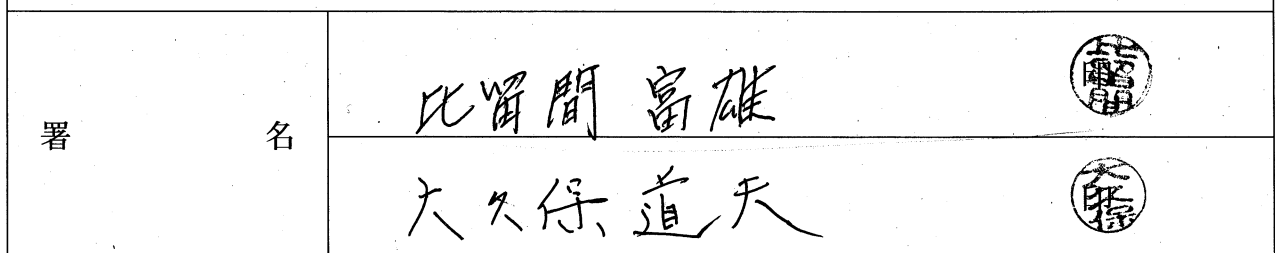 署名
比留間 富雄
比留間
大久保 道夫
大久保